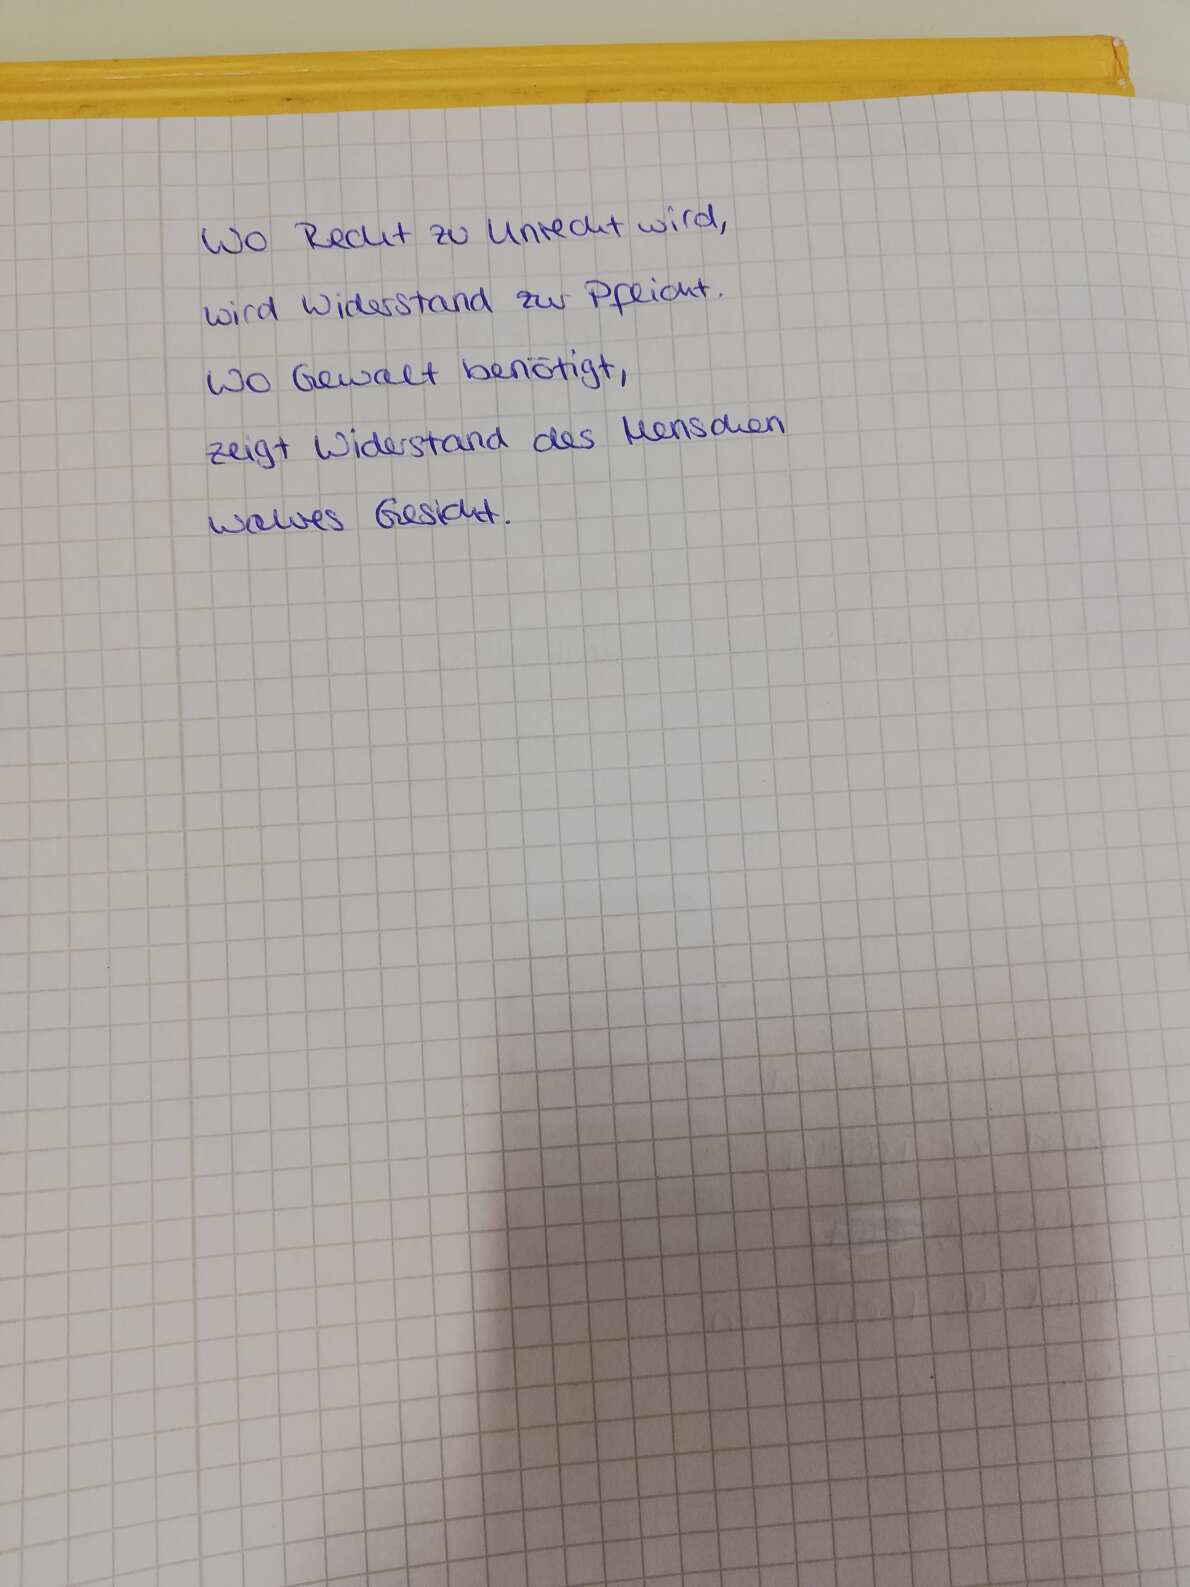 Wo Recht zu Unrecht wird,
wird Widerstand zur Pflicht.
Wo Gewalt benötigt,
zeigt Widerstand des Menschen
wahres Gesicht.